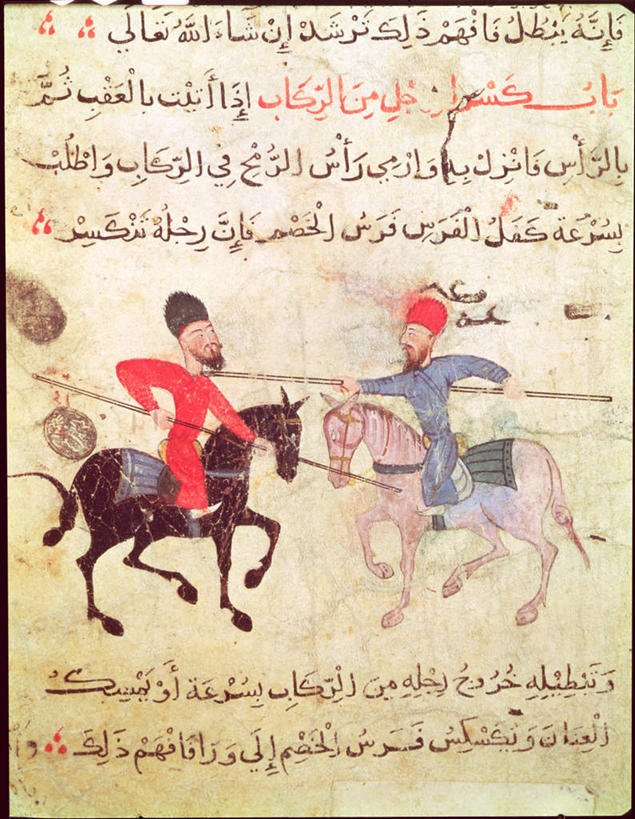 فَإِنَّهُ يَبْطُلُ فَافْهَمْ ذَلِكَ تَرْشَدْ إِنْ شَاءَ اللَّهُ تَعَالَى
بَابُ كَسْرِ الرِّجْلِ مِنَ الرِّكَابِ إِذَا أَتَيْتَ بِالْعَقْبِ ثُمَّ
بِالرَّأْسِ فَانْزِلْ بِهِ وَارْمِي رَأْسُ الرُّمْحِ فِي الرِّكَابِ وَاطْلُبْ
بِسُرْعَةٍ كَفَلُ الْفَرَسِ فَرَسُ الْخَصْمِ فَإِنَّ رِجْلَهُ تَنْكَسِرُ
وَتَبْطِيلِهِ خُرُوجُ رِجْلِهِ مِنَ الرِّكَابِ بِسُرْعَةٍ أَوْ يَمْسِكُ
الْعِنَانَ وَ فَرَسُ الْخَصْمِ إِلَى وَرَا فَافْهَمْ ذَلِكَ